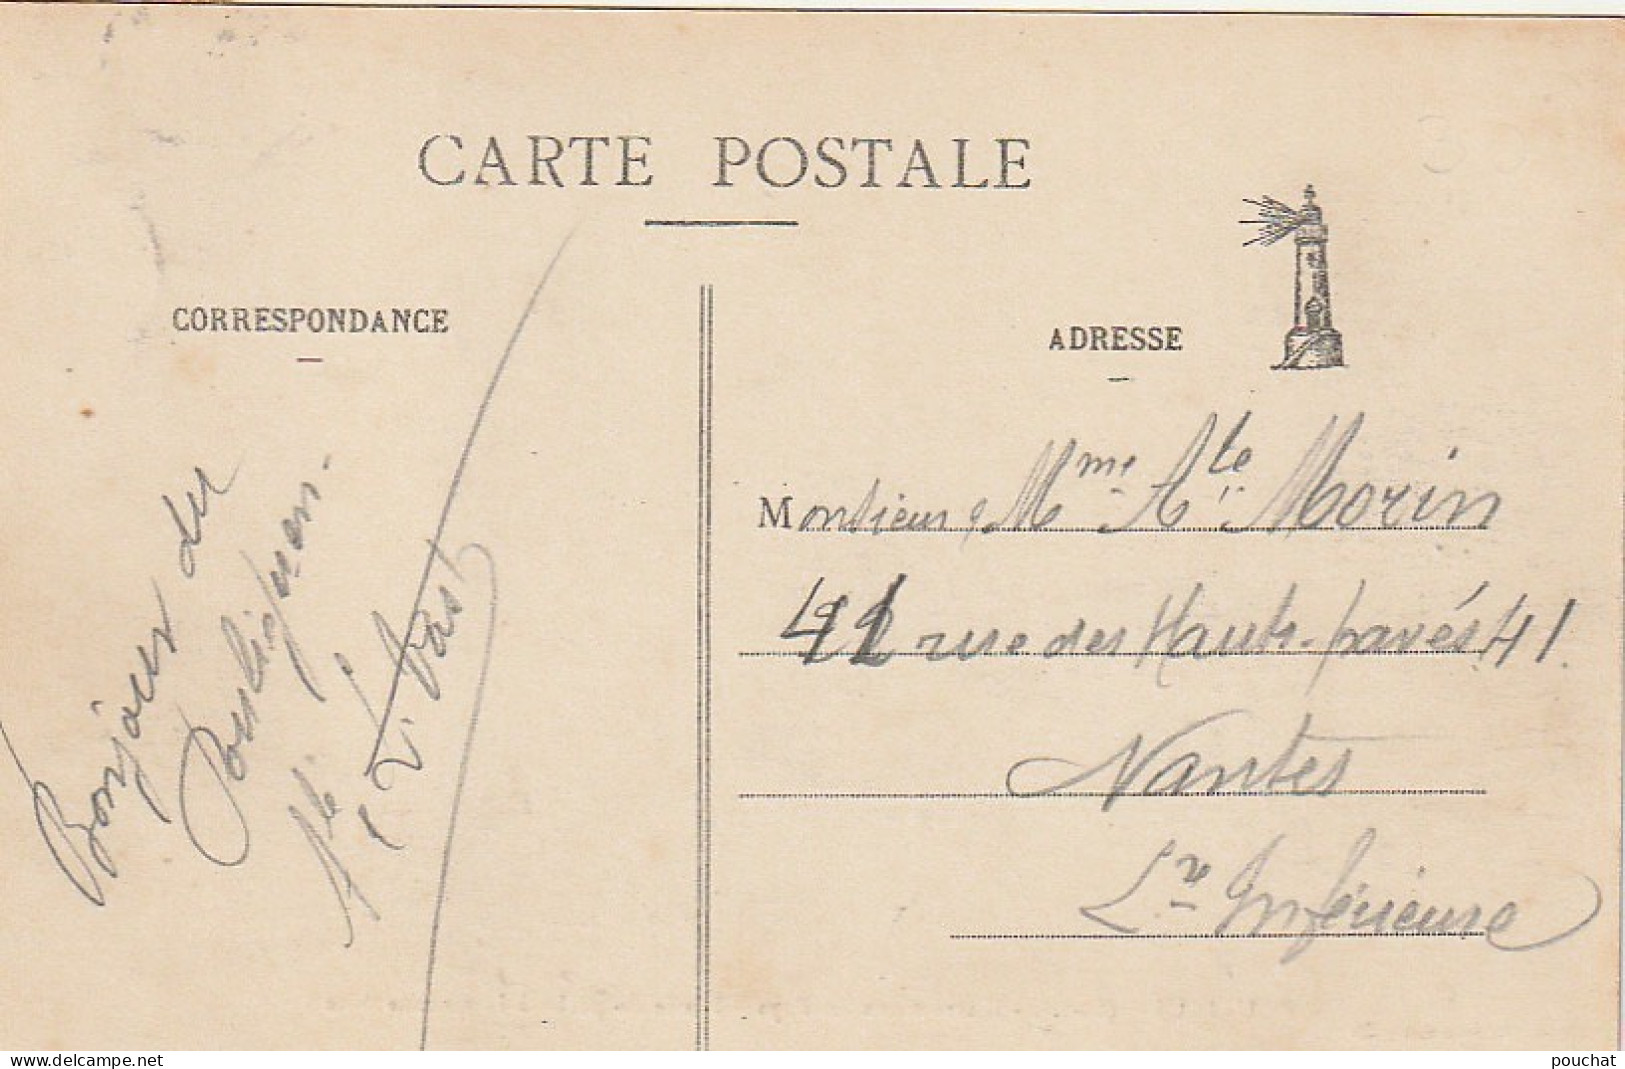 CARTE POSTALE
CORRESPONDANCE
ADRESSE
Bonjour du
Pouliguen.
Monsieur & Mme Ate Morin
41 rue des Hauts-pavés 41.
Nantes
Lre Inférieure
www.delcampe.net
pouchat